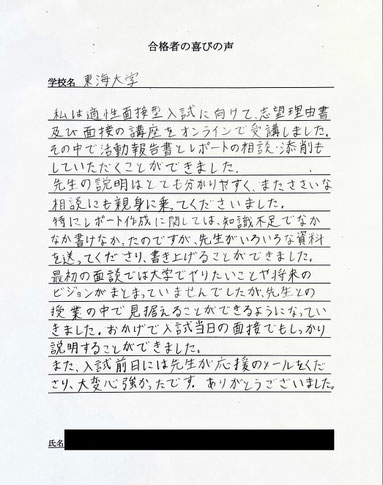 合格者の喜びの声
学校名 東海大学
私は適性面接型入試に向けて、志望理由書
及び面接の講座をオンラインで受講しました。
その中で活動報告書とレポートの相談・添削も
していただくことができました。
先生の説明はとても分かりやすく、またささいな
相談にも親身に乗ってくださいました。
特にレポート作成に関しては、知識不足でなか
なか書けなかったのですが、先生がいろいろな資料
を送ってくださり、書き上げることができました。
最初の面談では大学でやりたいことや将来の
ビジョンがまとまっていませんでしたが、先生との
授業の中で見据えることができるようになってい
きました。おかげで入試当日の面接でもしっかり
説明することができました。
また、入試前日には先生が応援のメールをくだ
さり、大変心強かったです。ありがとうございました。
氏名